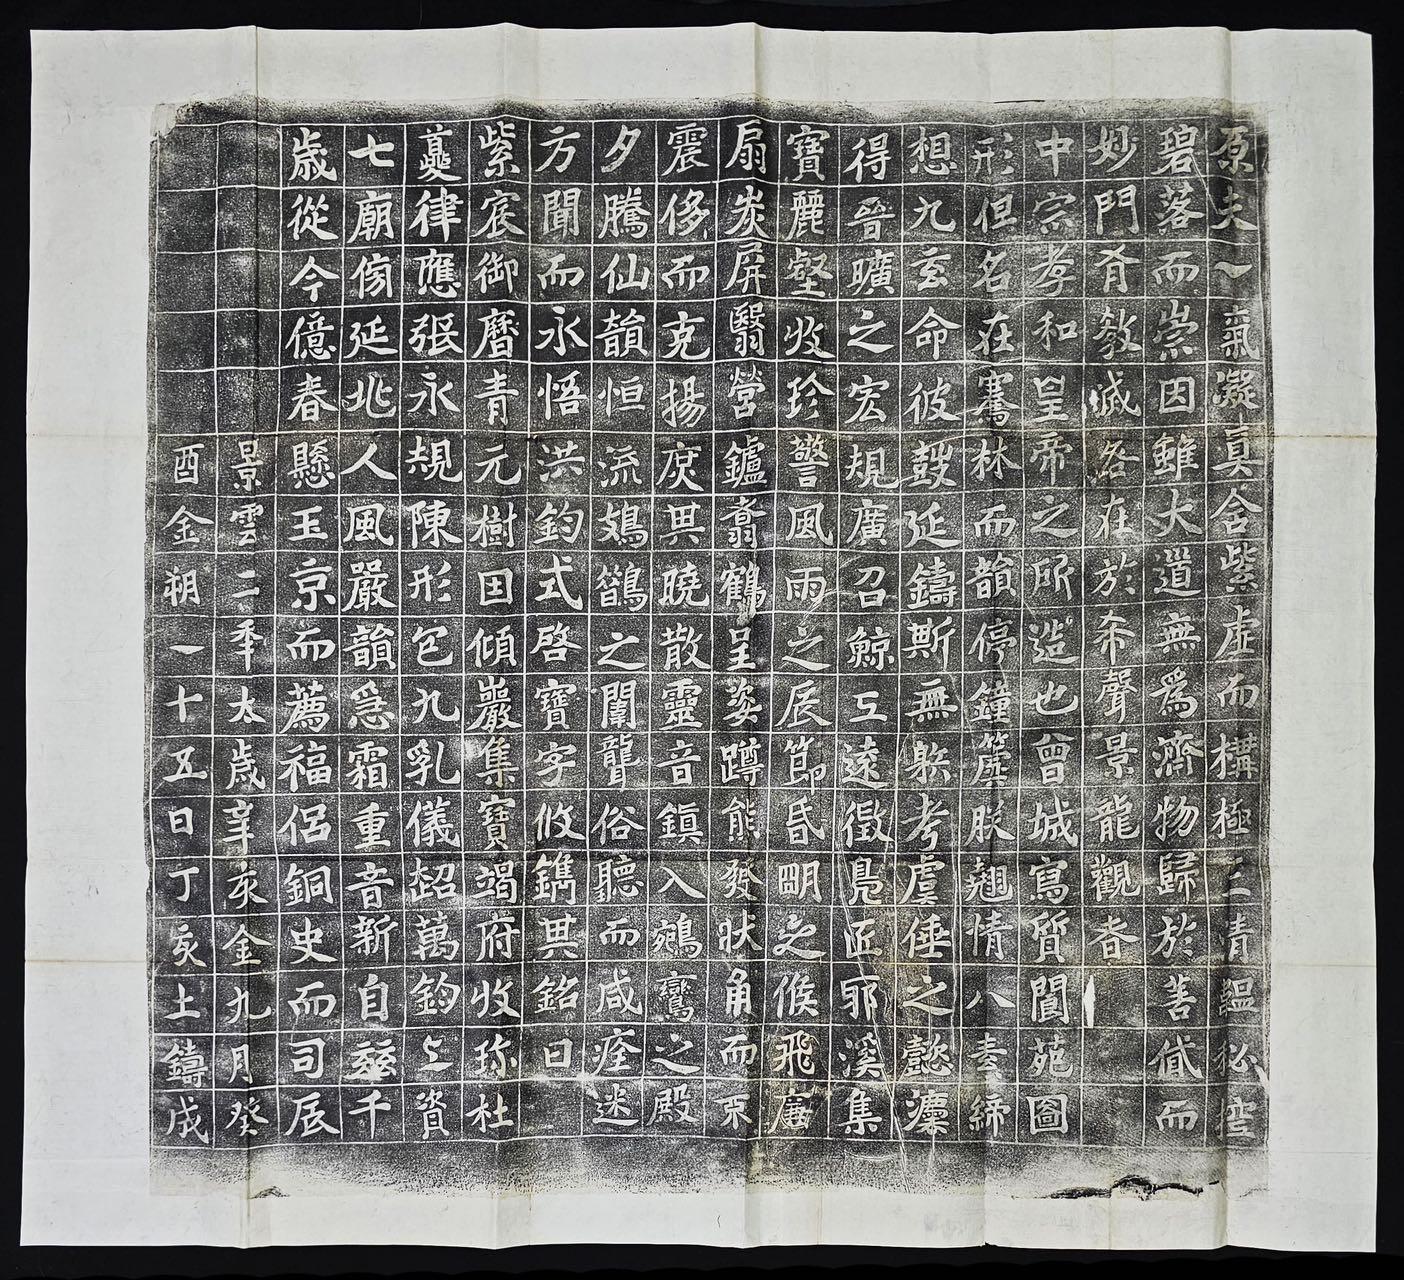 原夫一氣凝真含紫虛而構極三清韞祕控
碧落而崇因雖大道無爲濟物歸於善貸而
妙門有教誡各在於希聲景龍觀者
中宗孝和皇帝之所造也曾城寫質閬苑圖
形但名在騫林而韻停鐘簴朕翹情八素締
想九玄命彼鼓延鑄斯無躲考虞倕之懿灋
得晉曠之宏規廣召鯨工遠徵鳧匠耶溪集
寶麗壑收珍警風雨之辰節昏明之候飛廉
扇炭屏翳營鑪翥鶴呈姿蹲熊發狀角而不
震侈而克揚庶其曉散靈音鎮入鵷鸞之殿
夕騰仙韻恒流鳷鵲之闈聾俗聽而咸痊迷
方聞而永悟洪鈞式啓寶字攸鐫其銘曰
紫宸御曆青元樹因傾巖集寶竭府收珍杜
夔律應張永規陳形包九乳儀超萬鈞上資
七廟傍延兆人風嚴韻急霜重音新自茲千
歲從今億春懸玉京而薦福侶銅史而司辰
景雲二年太歲辛亥金九月癸
酉金朔一十五日丁亥土鑄成